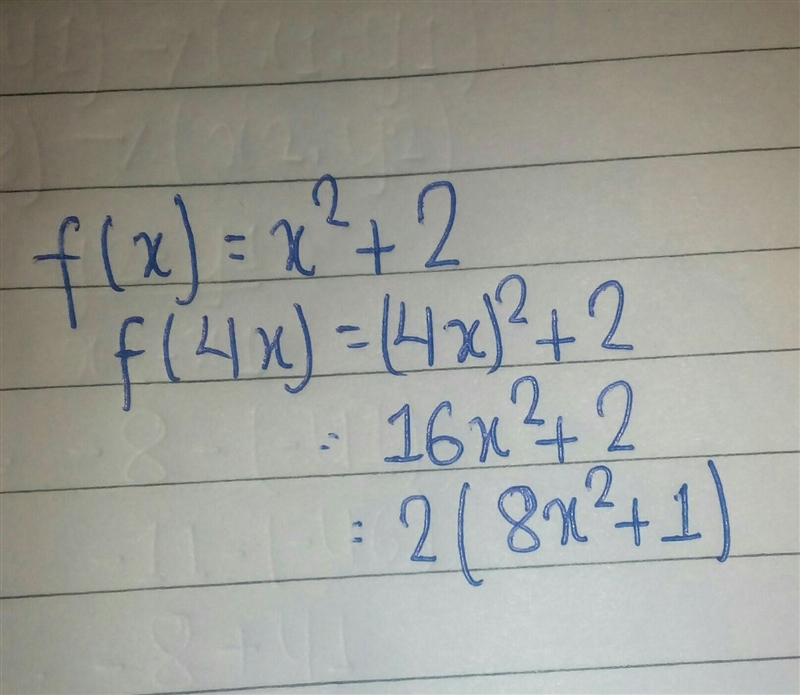 f(x) = x² + 2
f(4x) = (4x)² + 2
= 16x² + 2
= 2(8x² + 1)